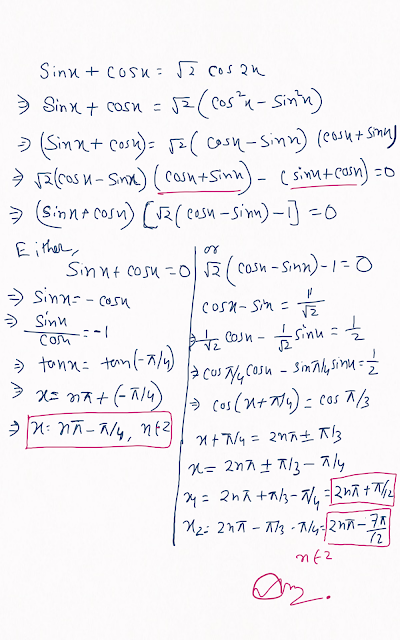 Sinx + cosx = √2 cos2x
⇒ Sinx + cosx = √2(cos²x - sin²x)
⇒ (Sinx + cosx) = √2(cosx - sinx) (cosx + sinx)
⇒ √2(cosx - sinx) (cosx + sinx) - (sinx + cosx) = 0
⇒ (sinx + cosx) [√2(cosx - sinx) - 1] = 0
Either,
Sinx + cosx = 0
⇒ Sinx = - cosx
⇒ Sinx/cosx = -1
⇒ tanx = tan(-π/4)
⇒ x = nπ + (-π/4)
⇒ x = nπ - π/4, n∈Z
or
√2(cosx - sinx) - 1 = 0
cosx - Sin = 1/√2
⇒ 1/√2 cosx - 1/√2 sinx = 1/2
⇒ cosπ/4 cosx - sinπ/4 sinx = 1/2
⇒ cos(x + π/4) = cos π/3
x + π/4 = 2nπ ± π/3
x = 2nπ ± π/3 - π/4
x₁ = 2nπ + π/3 - π/4 = 2nπ + π/12
x₂ = 2nπ - π/3 - π/4 = 2nπ - 7π/12
n∈Z